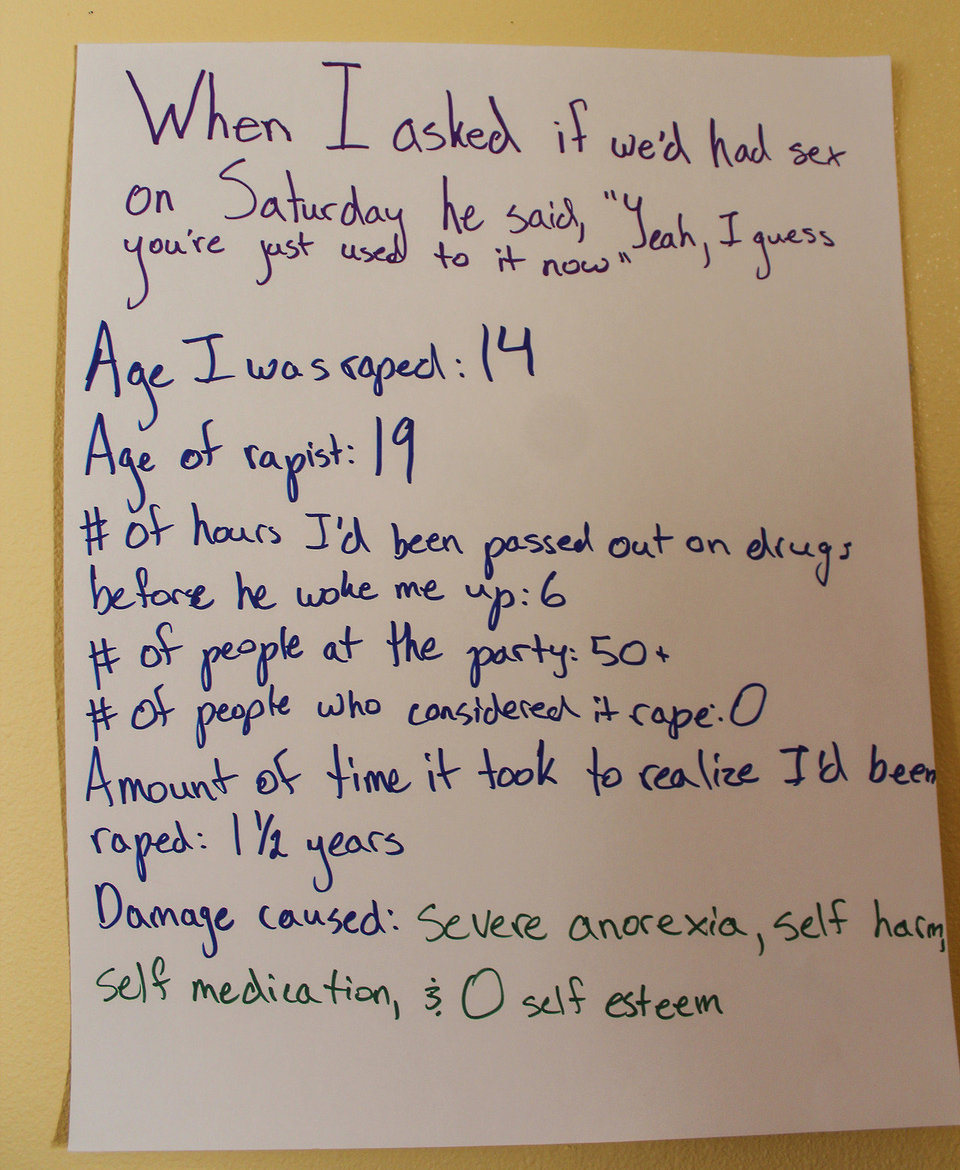 When I asked if we'd had sex
on Saturday he said, "Yeah, I guess
you're just used to it now"
Age I was raped: 14
Age of rapist: 19
# of hours I'd been passed out on drugs
before he woke me up: 6
# of people at the party: 50+
# of people who considered it rape: 0
Amount of time it took to realize I'd been
raped: 1 1/2 years
Damage caused: Severe anorexia, self harm,
self medication, & 0 self esteem